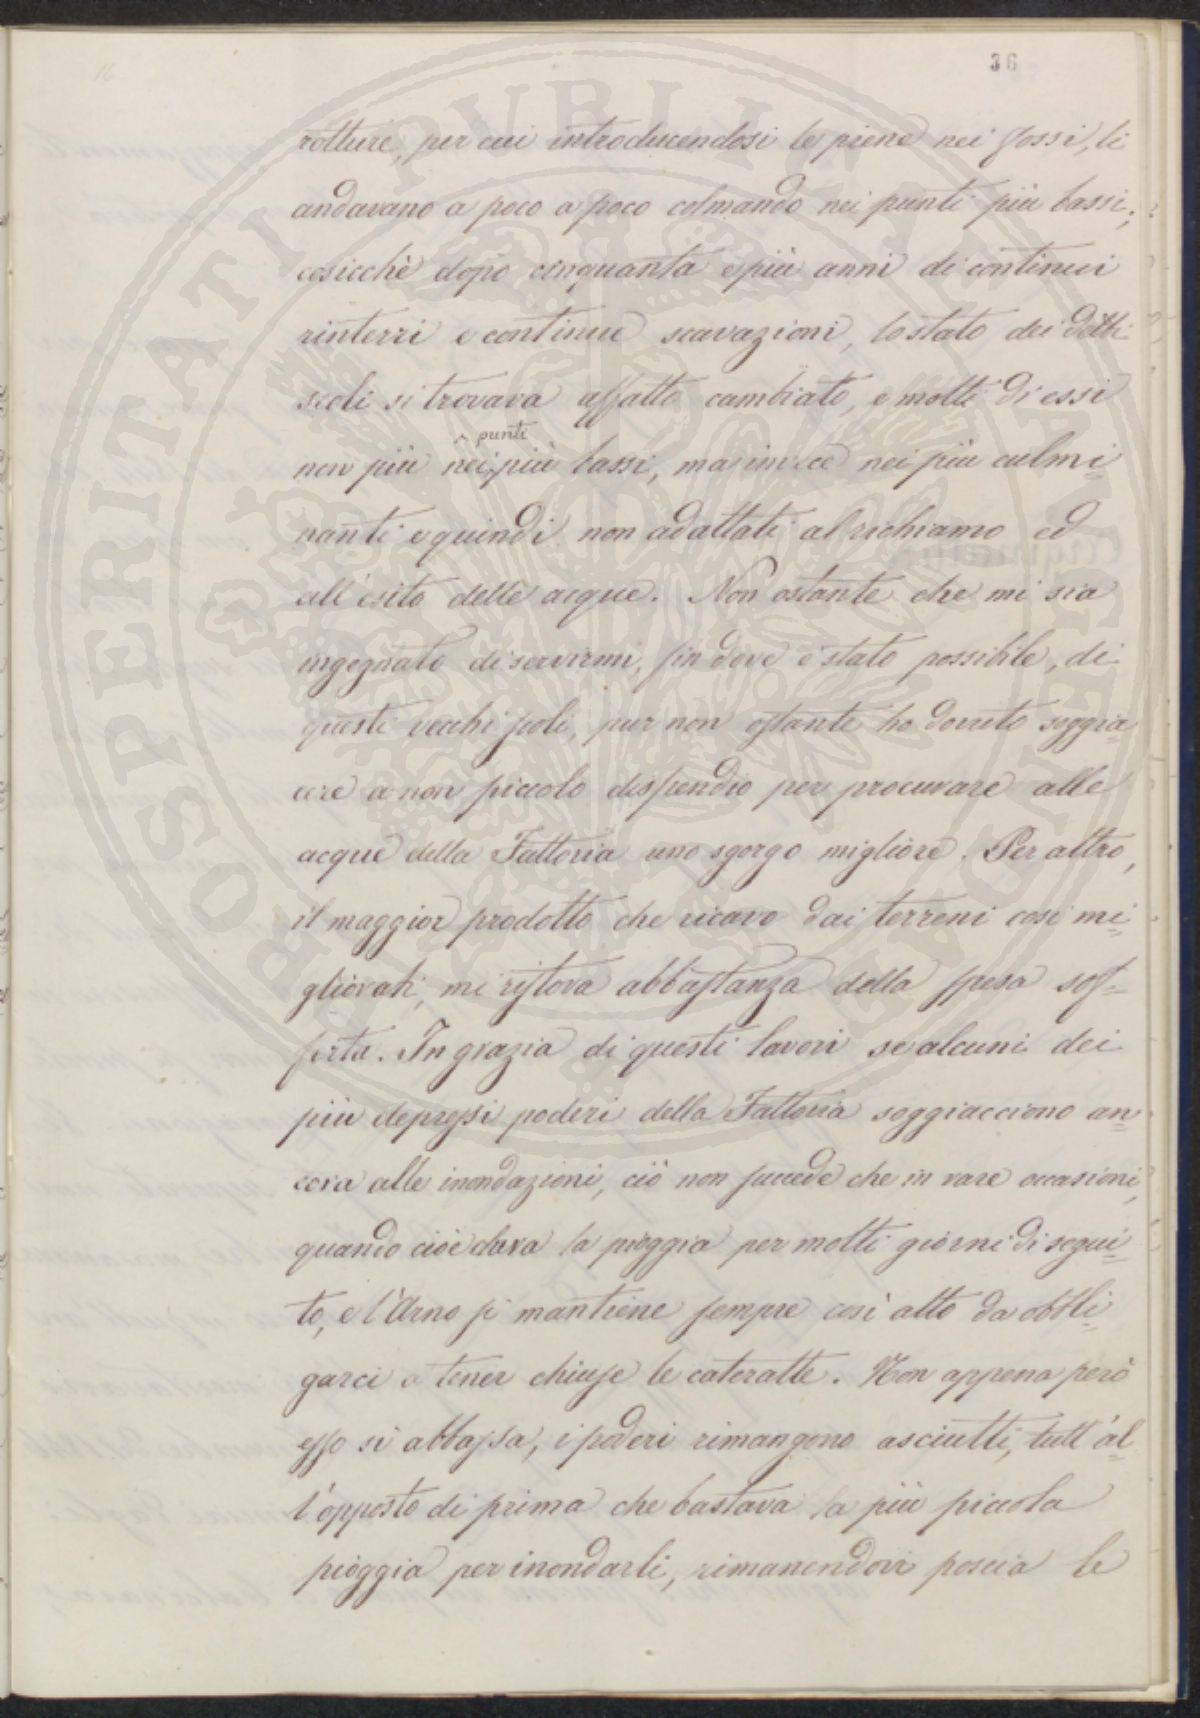 36
16
rotture, per cui introducendosi le piene nei fossi, li
andavano a poco a poco colmando nei punti più bassi;
cosicchè dopo cinquanta e più anni di continui
rinterri e continue scavazioni, lo stato dei detti
scoli si trovava affatto cambiato, e molti di essi
punti
non più nei più bassi, ma invece nei più culmi=
nanti e quindi non adattati al richiamo ed
all'esito delle acque. Non ostante che mi sia
ingegnato di servirmi, fin dove è stato possibile, di
questi vecchi scoli, pur non ostante ho dovuto soggia=
cere a non piccolo dispendio per procurare alle
acque della Fattoria uno sgorgo migliore. Per altro,
il maggior prodotto che ricavo dai terreni così mi=
gliorati, mi ristora abbastanza della spesa sof=
ferta. In grazia di questi lavori se alcuni dei
più depressi poderi della Fattoria soggiacciono an=
cora alle inondazioni, ciò non succede che in rare occasioni,
quando cioè dura la pioggia per molti giorni di segui=
to, e l'Arno si mantiene sempre così alto da obbli=
garci a tener chiuse le cateratte. Non appena però
esso si abbassa, i poderi rimangono asciutti, tutt'al=
l'opposto di prima che bastava la più piccola
pioggia per inondarli, rimanendovi poscia le
PROSPERITATI PVBLICAE AVGENDAE